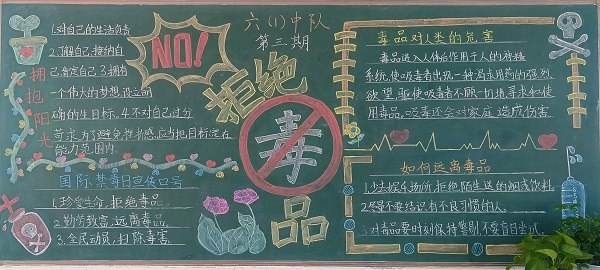 六(1)中队
第三期
NO!
拒绝
毒
品
拥抱阳光
1.对自己的生活负责
2.了解自己,接纳自
己,肯定自己.3.拥有
一个伟大的梦想,设立明
确的生目标.4.不对自己过分
苛求,为了避免挫折感,应当把目标定在
能力范围内.
国际禁毒日宣传口号
1.珍爱生命,拒绝毒品.
2.勤劳致富,远离毒品.
3.全民动员,扫除毒害.
毒品对人类的危害
毒品进入人体后作用于人的神经
系统,使吸毒者出现一种渴求用药的强烈
欲望,驱使吸毒者不顾一切地寻求和使
用毒品.吸毒还会对家庭造成伤害.
如何远离毒品
1.少去娱乐场所,拒绝陌生送的烟或饮料.
2.尽量不要结识有不良习惯的人.
3.对毒品要时刻保持警惕,不要盲目尝试.